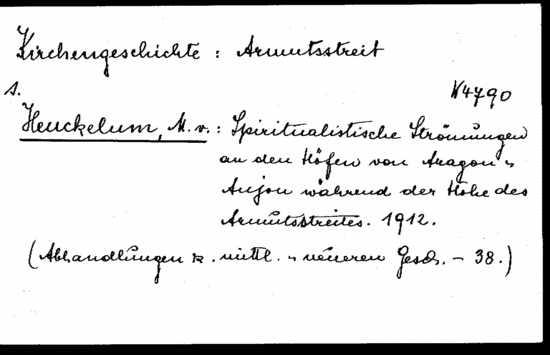 Kirchengeschichte : Armutsstreit
s.
N4790
Heuckelum, M. v. : Spiritualistische Strömungen
an den Höfen von Aragon u.
Anjou während der Höhe des
Armutsstreites. 1912.
(Abhandlungen z. mittl. u. neueren Gesch. - 38.)